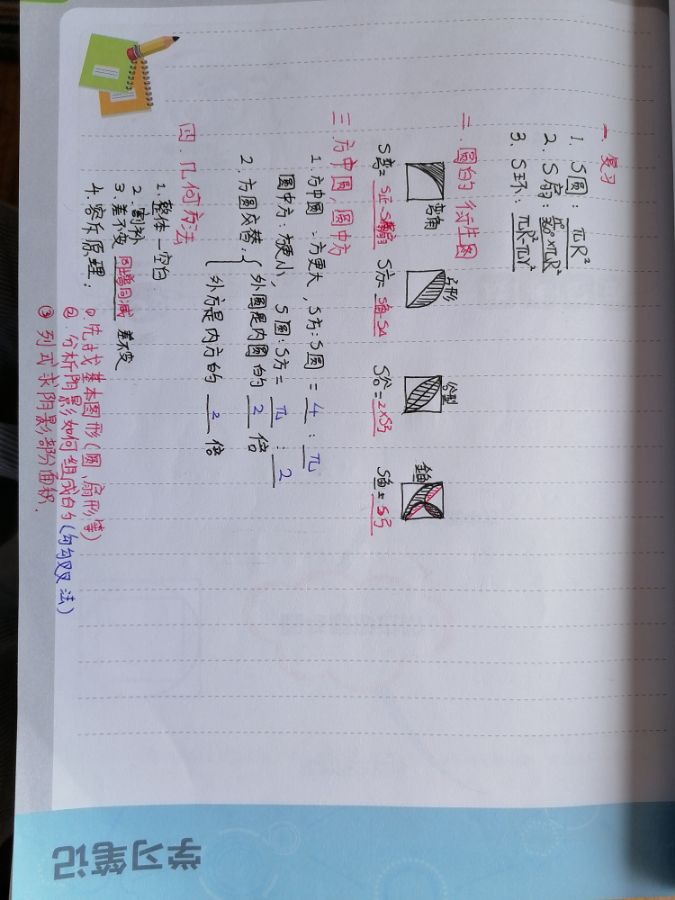 一 复习
1. S圆: πR²
2. S扇: n°/360° ×πR²
3. S环: πR²-πr²
二. 圆的衍生图
弯角 弓形 谷型
S弯= S正-S扇 S弓= S扇-S△ S谷=2×S弓 S鱼=S弓
三. 方中圆, 圆中方
1. 方中圆: 方更大, S方:S圆 = 4 : π
圆中方: 方更小, S圆:S方= π : 2
2. 方圆交替: { 外圆是内圆的 2 倍
外方是内方的 2 倍
四. 几何方法
1. 整体-空白
2. 割补
3. 差不变 同增同减 差不变
4. 容斥原理:
①. 先找基本图形(圆,扇形等)
②. 分析阴影如何组成的(勾勾叉叉法)
③ 列式求阴影部分面积.
学习笔记